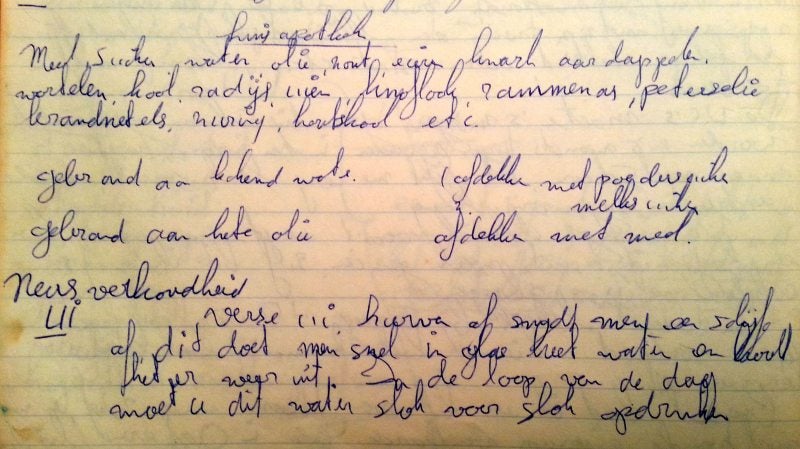 huis apotheek
Meel, suiker, water olie, zout, eieren knark aardappelen.
wortelen, kool, radijs, uien, knoflook, rammenas, peterselie
brandnetels, honing, houtskool etc.
gebrand aan kokend water. (afdekken met poedersuiker
melksuiker
gebrand aan hete olie afdekken met meel.
Neus verkoudheid
Ui Verse ui, hiervan af snijdt men een schijfje
af, dit doet men snel in glas heet water en haalt
het er weer uit. In de loop van de dag
moet u dit water slok voor slok opdrinken